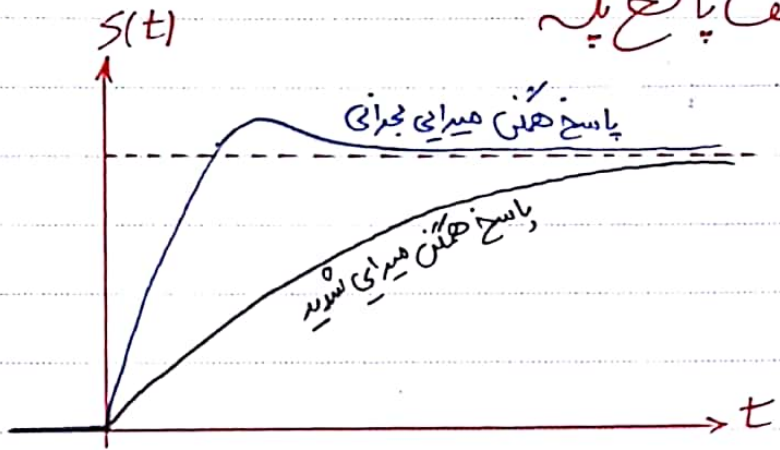 پاسخ پله
S(t)
پاسخ همگن میرایی بحرانی
پاسخ همگن میرایی شدید
t